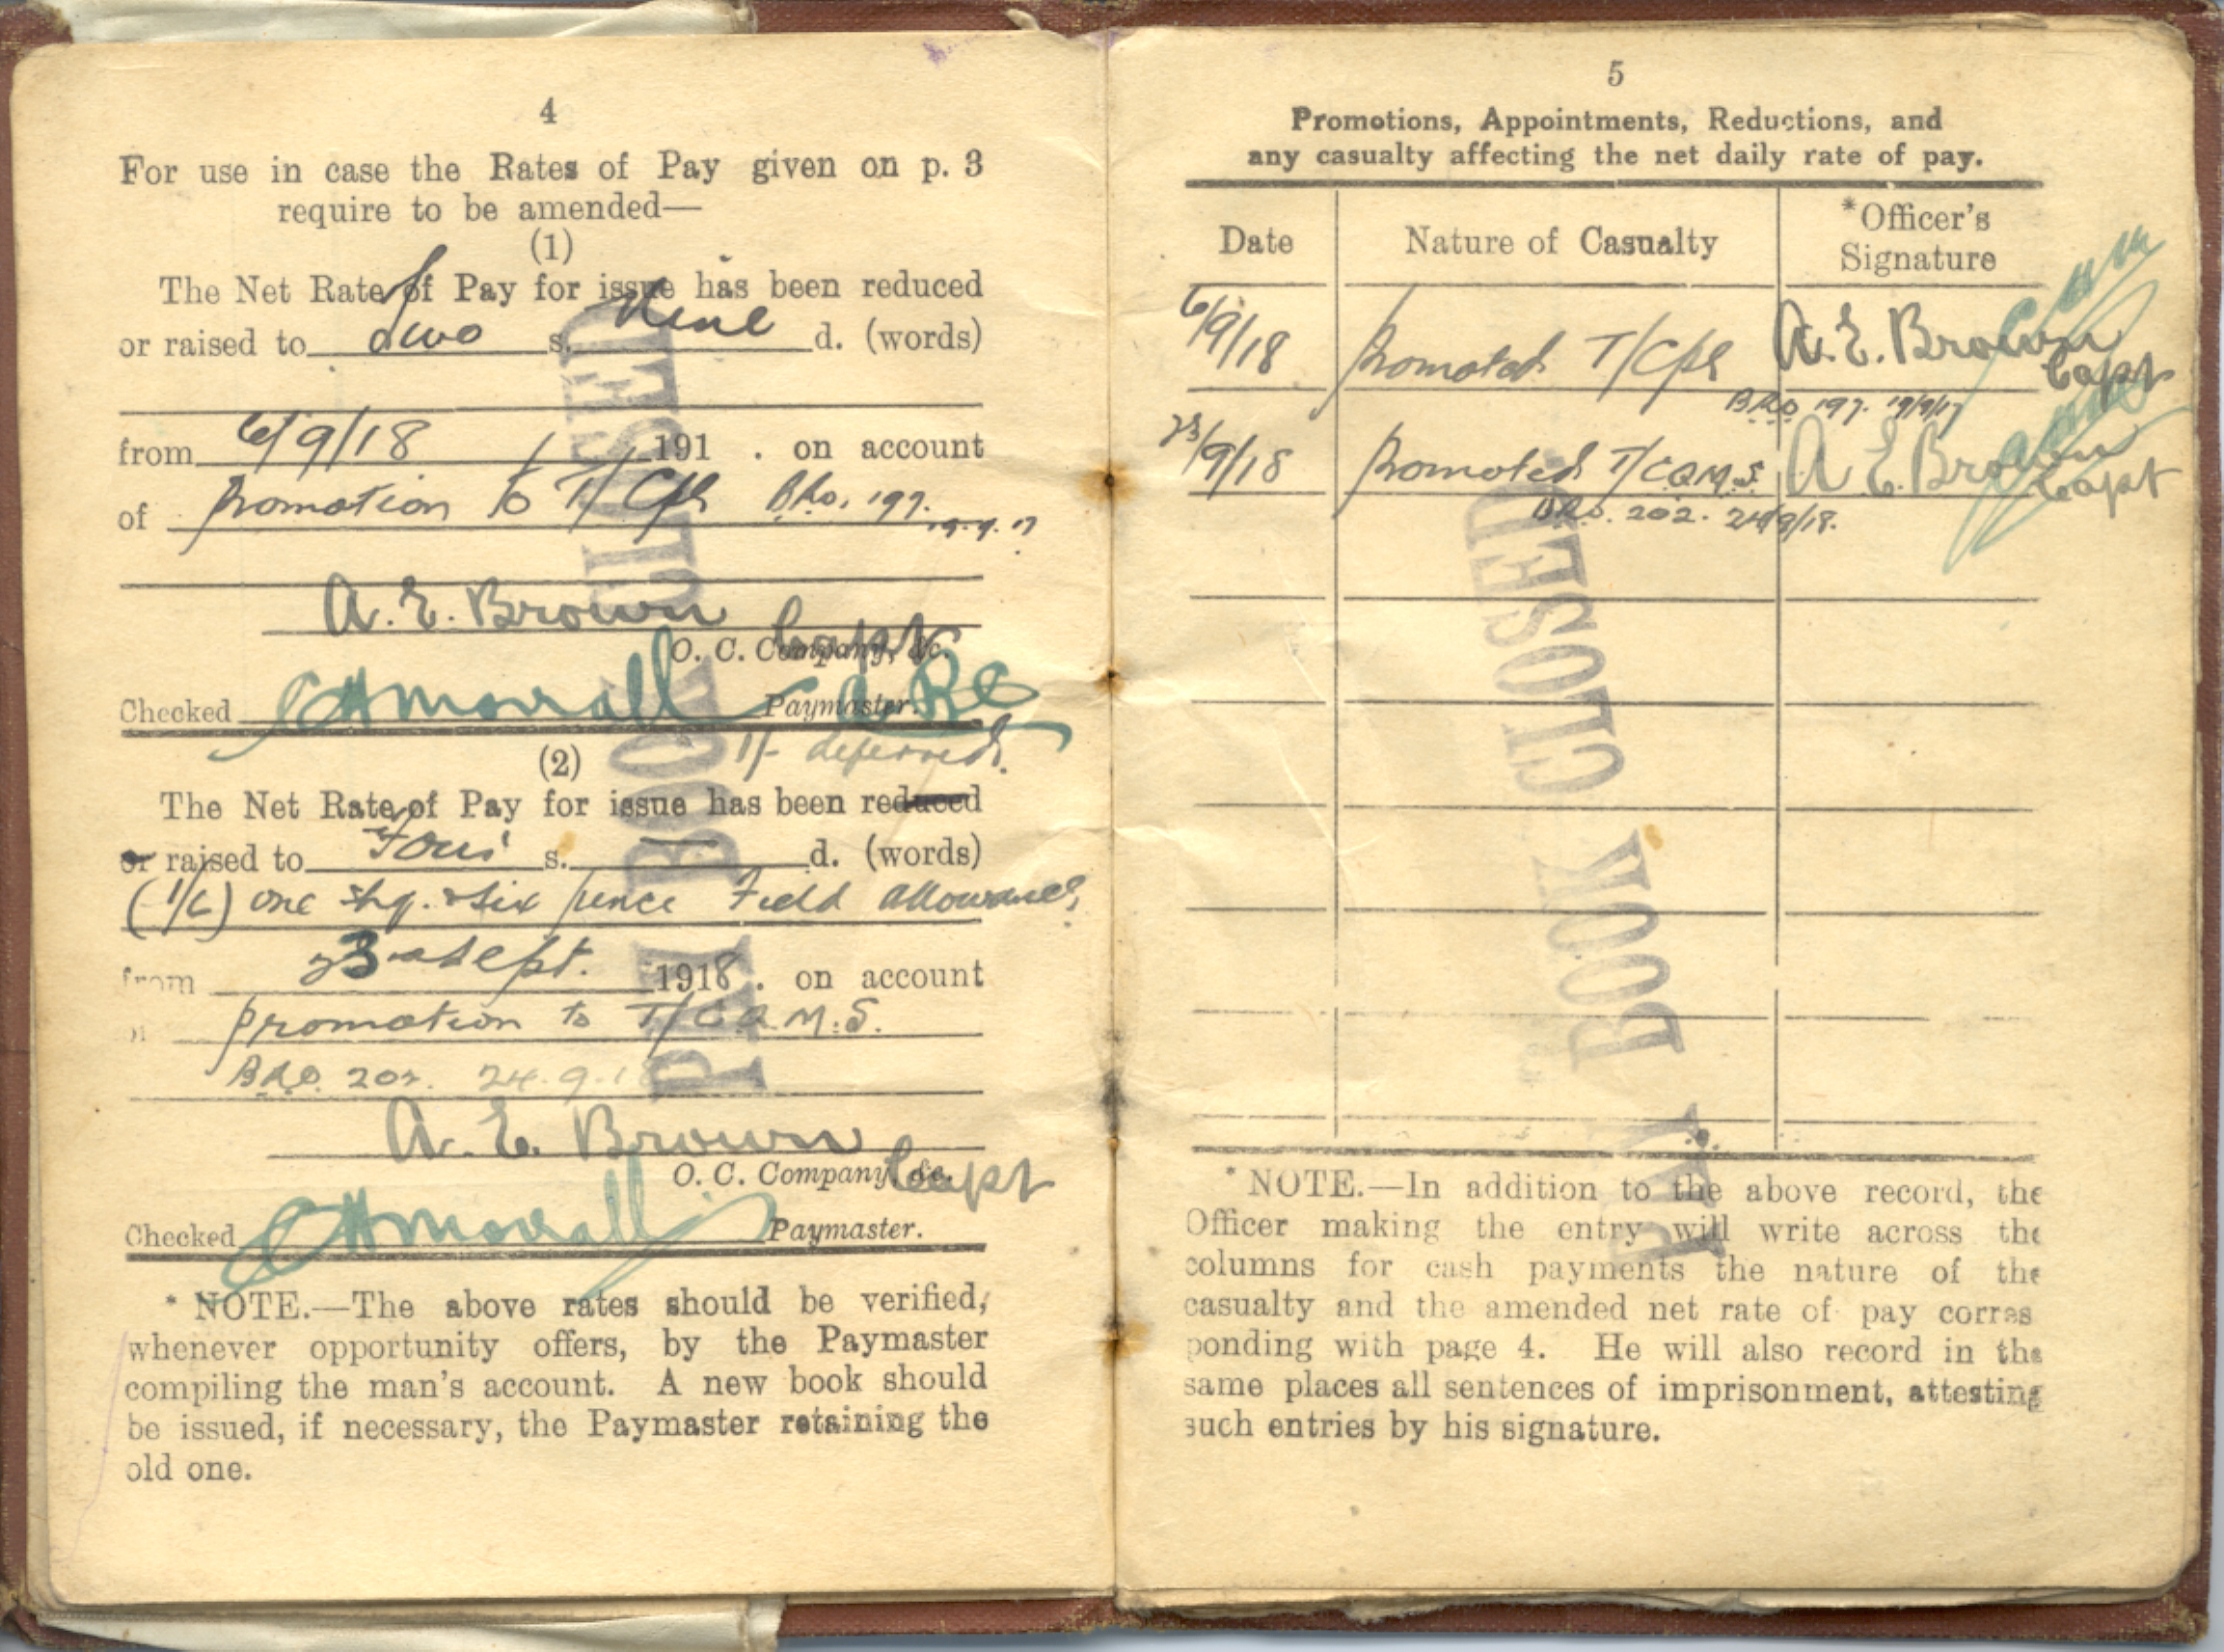 4
For use in case the Rates of Pay given on p. 3
require to be amended—
(1)
The Net Rate of Pay for issue has been reduced
or raised to two s. Nine d. (words)
from 6/9/18 191 . on account
of promotion to T/Cpl B.R.O. 197.
19.9.17
A. E. Brown
Capt
O. C. Company, &c.
Checked Paymaster.
1/- deferred.
(2)
The Net Rate of Pay for issue has been reduced
or raised to Four s. — d. (words)
(1/6) one shg. & six pence Field Allowance,
from 23 Sept. 1918 . on account
of promotion to T/C.Q.M.S.
B.R.O. 202. 24.9.18
A. E. Brown
Capt
O. C. Company, &c.
Checked Paymaster.
* NOTE.—The above rates should be verified,
whenever opportunity offers, by the Paymaster
compiling the man's account. A new book should
be issued, if necessary, the Paymaster retaining the
old one.
PAY BOOK CLOSED
5
Promotions, Appointments, Reductions, and
any casualty affecting the net daily rate of pay.
Date Nature of Casualty *Officer's Signature
6/9/18 Promoted T/Cpl A. E. Brown Capt
B.R.O 197. 19/9/17
23/9/18 Promoted T/C.Q.M.S. A E. Brown Capt
B.R.O. 202. 24/9/18.
* NOTE.—In addition to the above record, the
Officer making the entry will write across the
columns for cash payments the nature of the
casualty and the amended net rate of pay corres
ponding with page 4. He will also record in the
same places all sentences of imprisonment, attesting
such entries by his signature.
PAY BOOK CLOSED